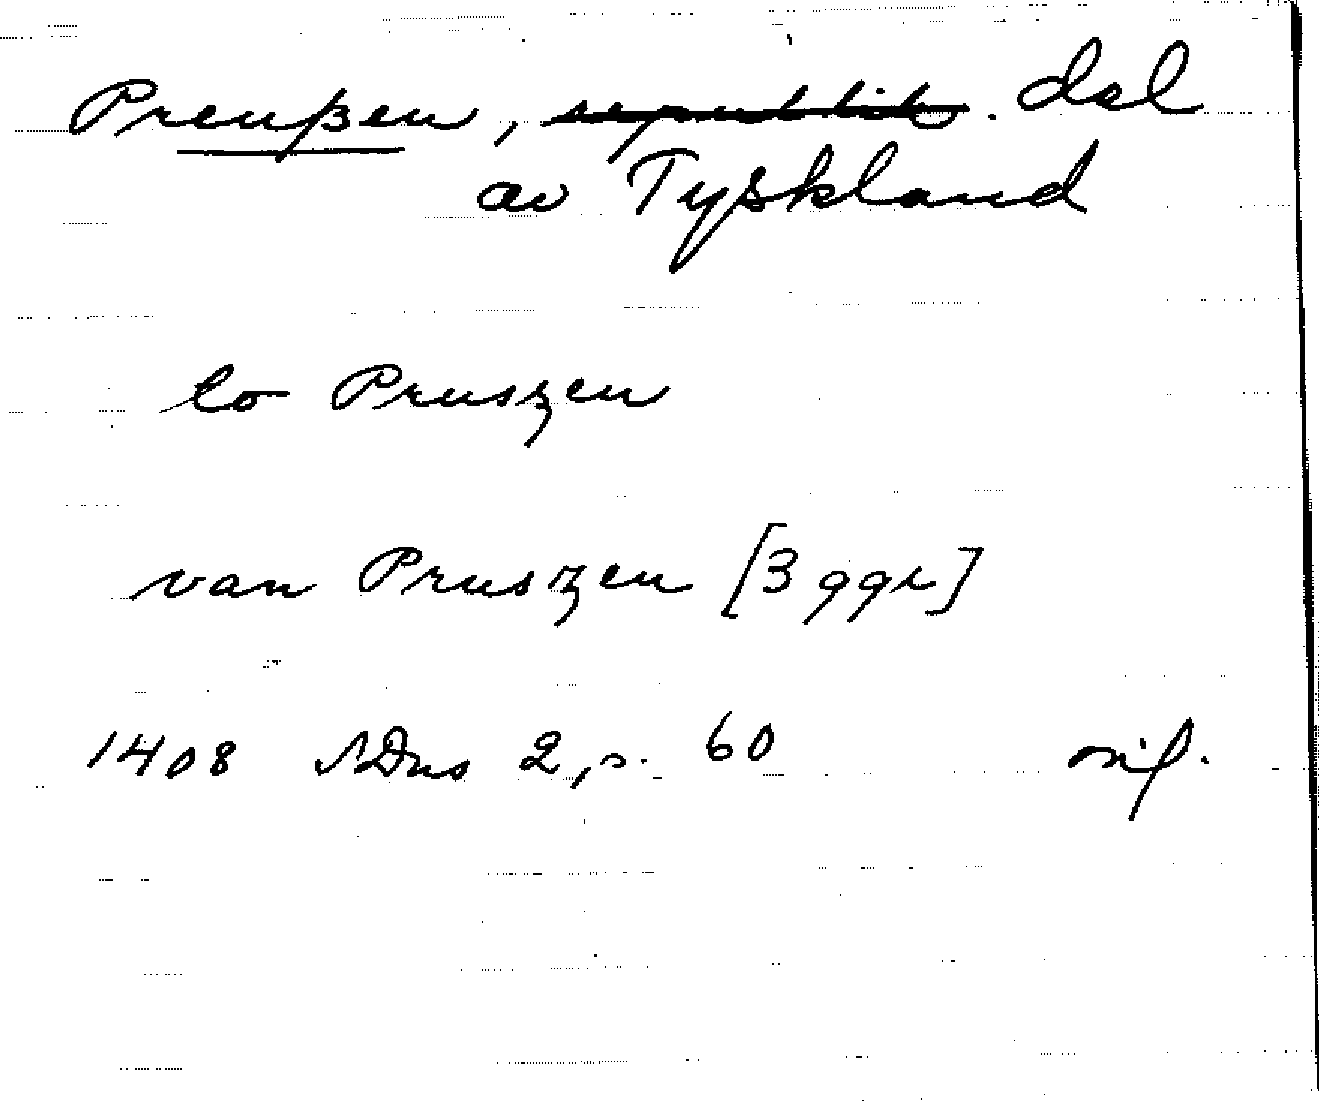 Preußen, republik. del
av Tyskland
to Pruszen
van Pruszen [3 ggr]
1408 SDns 2, s. 60 orig.